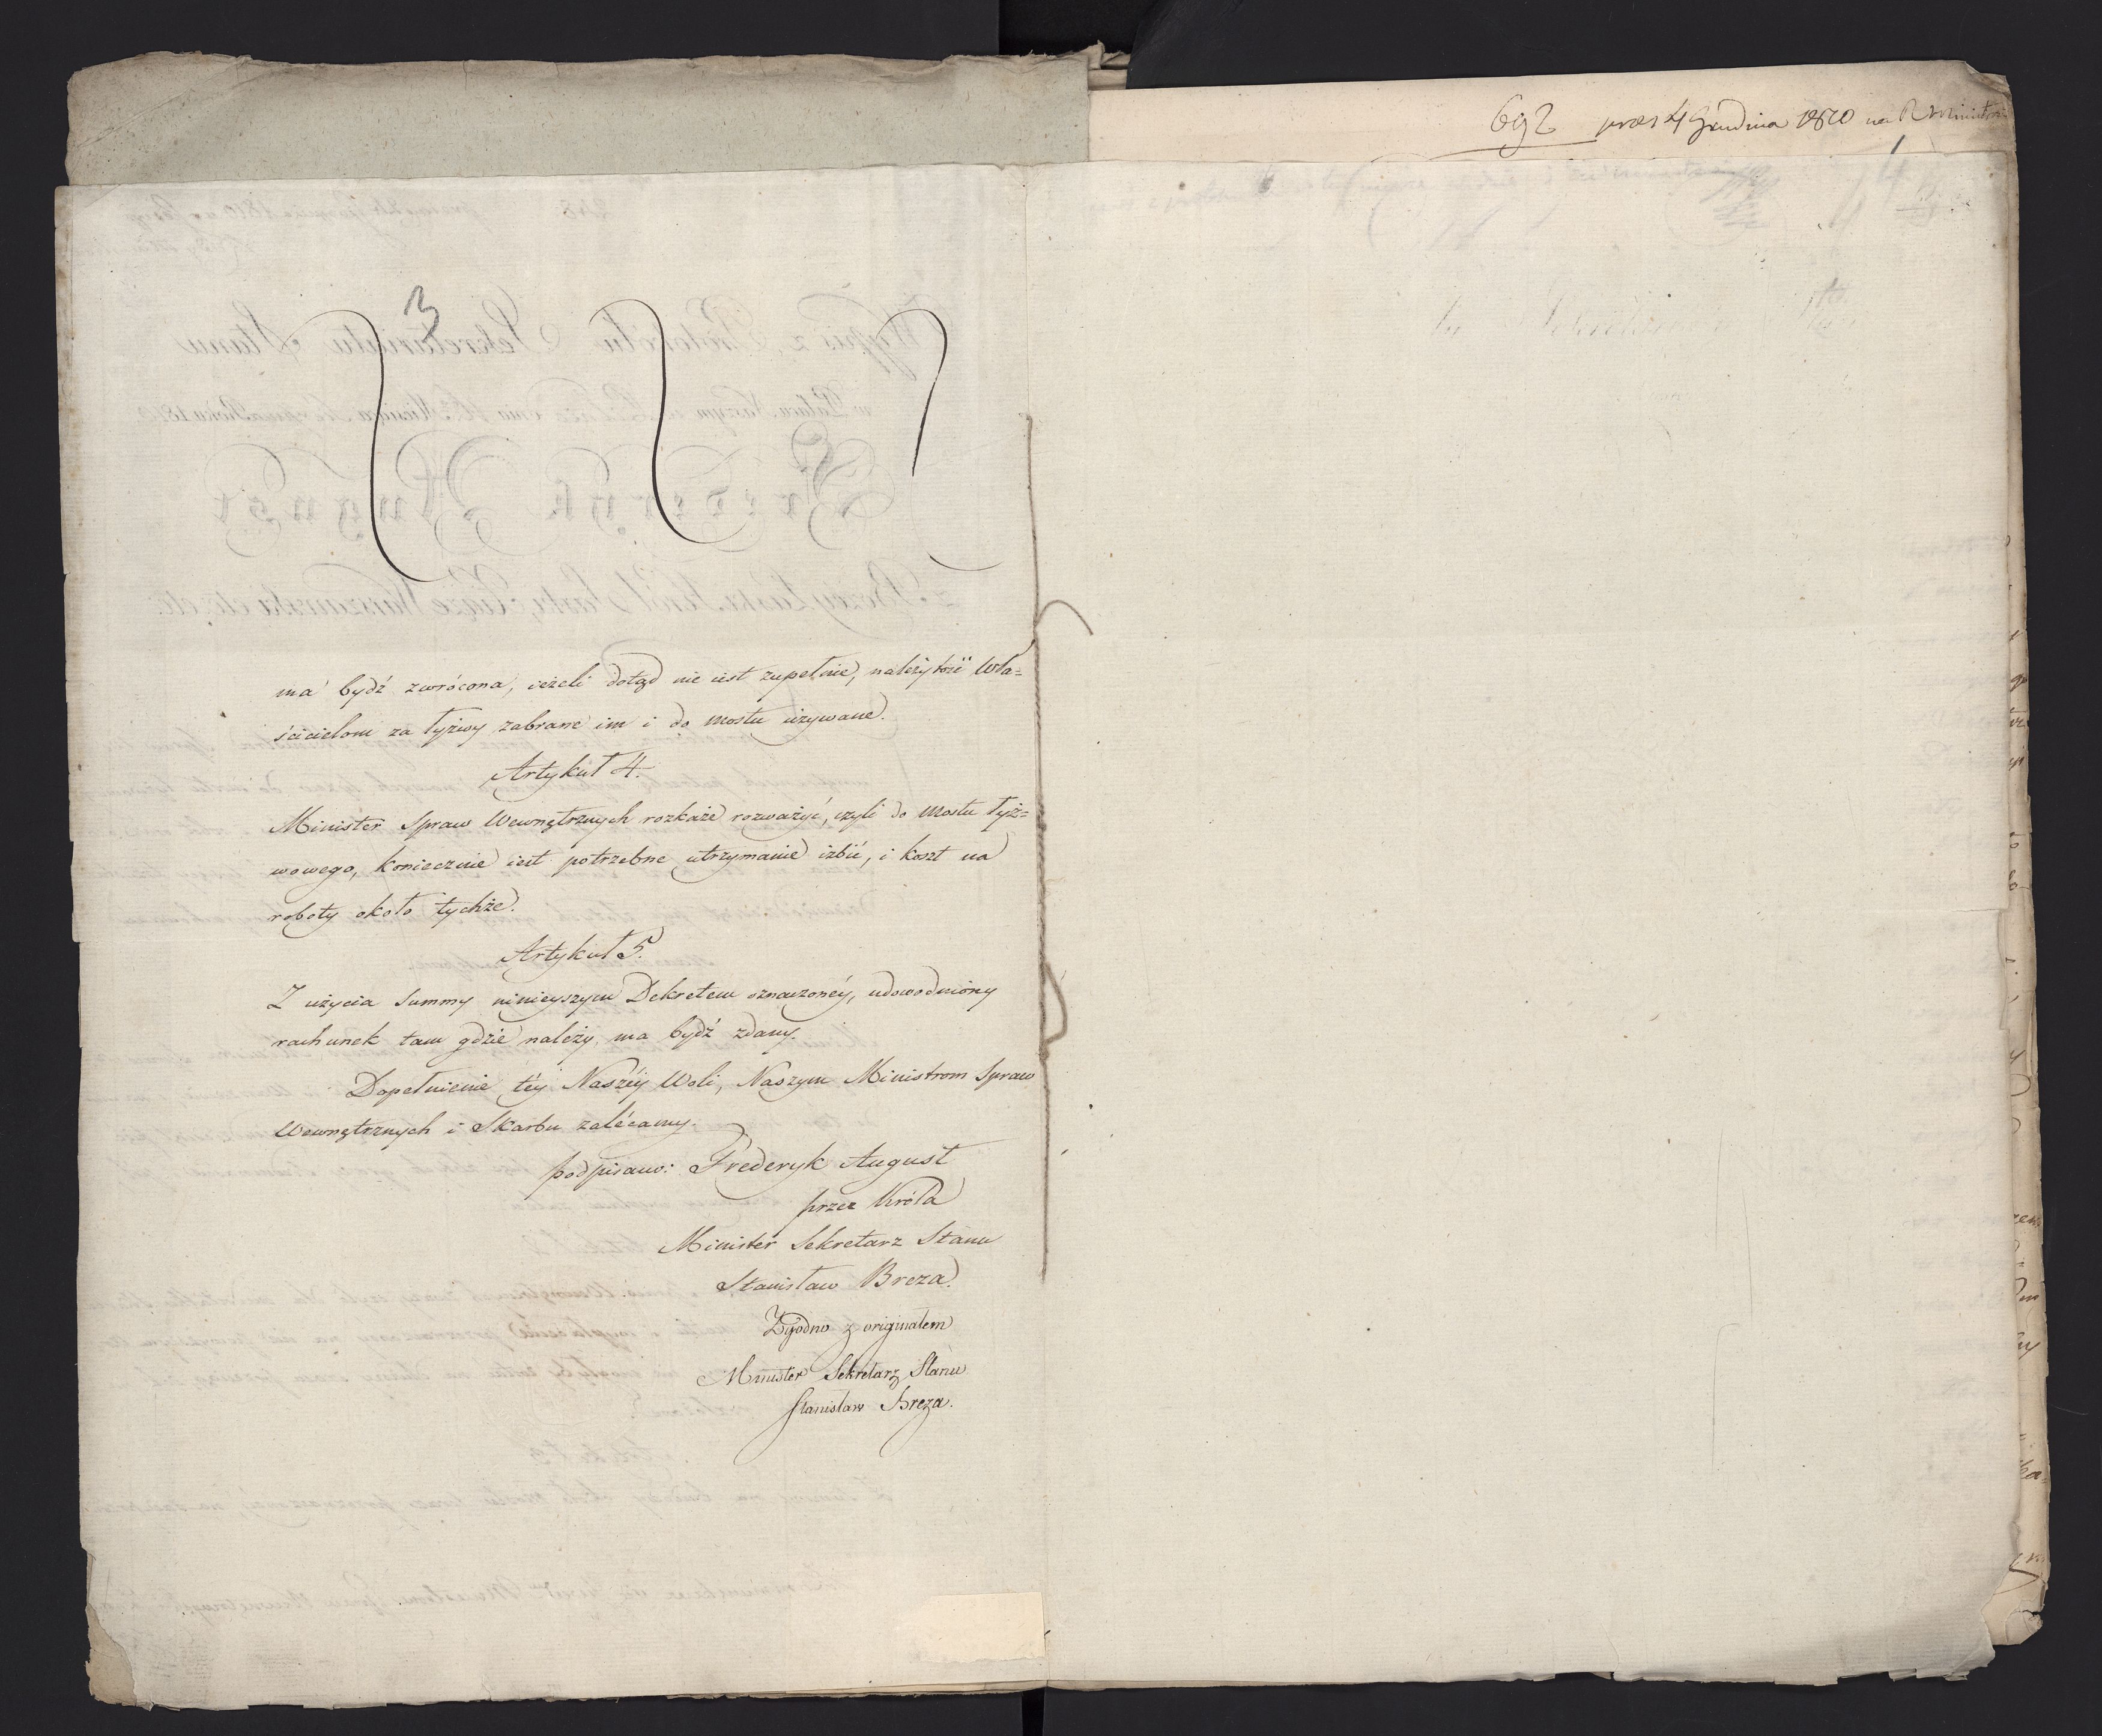 692 præs 4 Grudnia 1810 na R Ministrów
3
ma bydź zwrócona, ieżeli dotąd nie iest zupełnie, należytość Wła=
ścicielom za łyżwy zabrane im i do mostu używane.
Artykuł 4.
Minister Spraw Wewnętrznych rozkaże rozważyć, czyli do Mostu łyż=
wowego, koniecznie iest potrzebne utrzymanie izbic, i koszt na
roboty około tychże.
Artykuł 5.
Z użycia Summy ninieyszym Dekretem oznaczonéy, udowodniony
rachunek tam gdzie należy ma bydź zdany.
Dopełnienie téy Naszéy Woli, Naszym Ministrom Spraw
Wewnętrznych i Skarbu zalécamy.
podpisano: Frederyk August
przez Króla
Minister Sekretarz Stanu
Stanisław Breza.
Zgodno z originałem
Minister Sekretarz Stanu
Stanisław Breza.